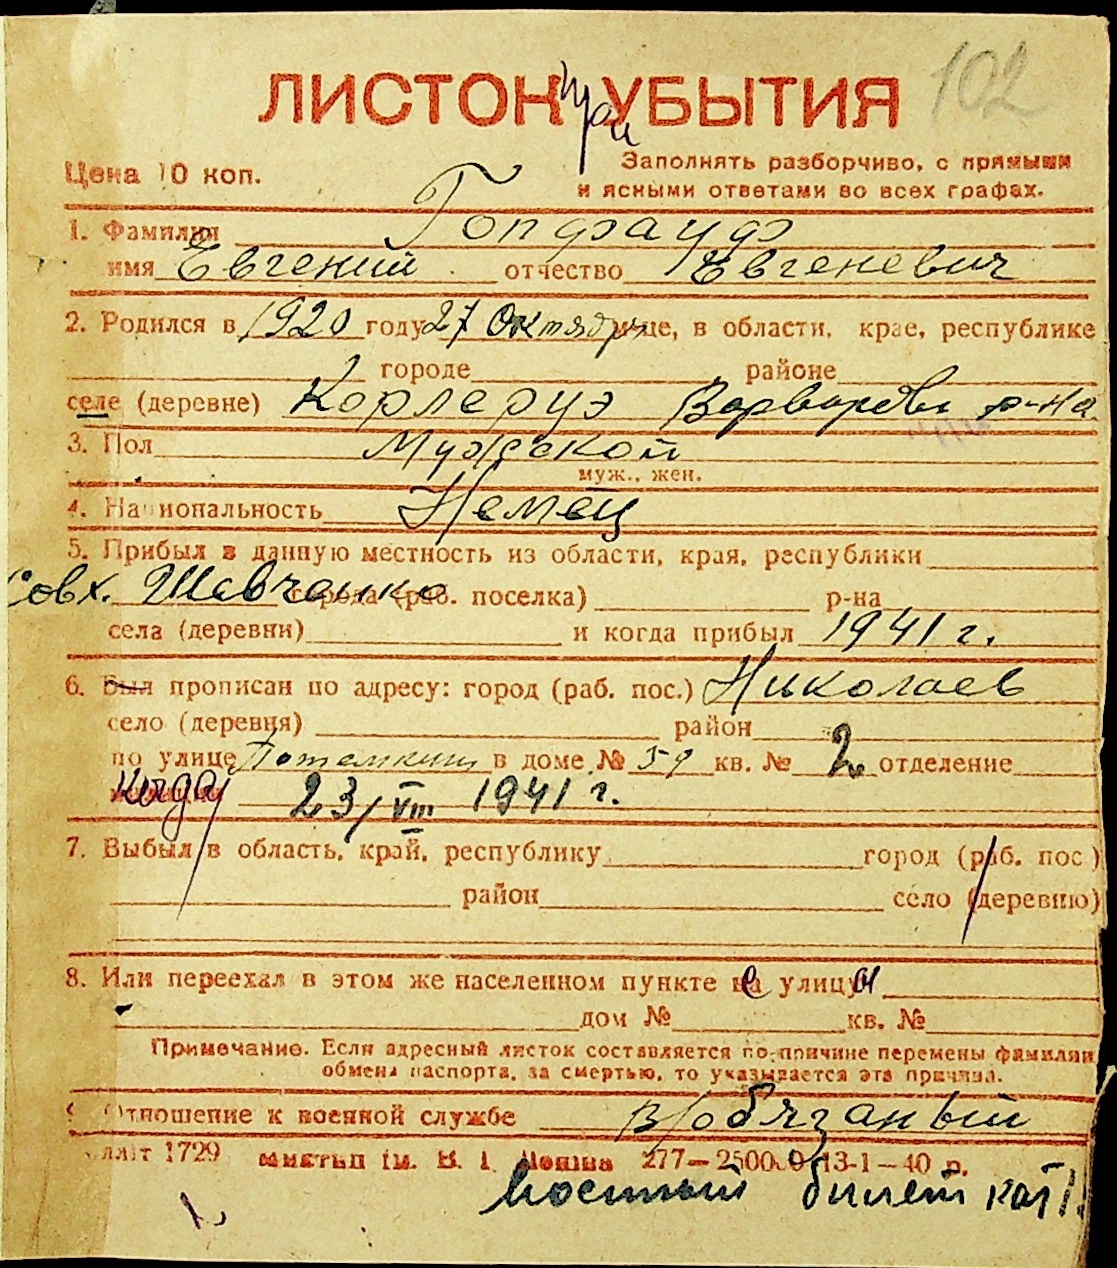 102
ЛИСТОК при УБЫТИЯ
Цена 10 коп.
Заполнять разборчиво, с прямыми
и ясными ответами во всех графах.
1. Фамилия Гопфауф
имя Евгений отчество Евгеневич
2. Родился в 1920 году 27 Октября це, в области, крае, республике
городе районе
селе (деревне) Корлеруэ Варваровск р-на
3. Пол Мужской
муж., жен.
4. Национальность Немец
5. Прибыл в данную местность из области, края, республики
Совх. Шевченко города (раб. поселка) р-на
села (деревни) и когда прибыл 1941 г.
6. Был прописан по адресу: город (раб. пос.) Николаев
село (деревня) район
по улице Потемкин в доме № 59 кв. № 2 отделение
Когда 23/VIII 1941 г.
7. Выбыл в область, край, республику город (раб. пос.)
район село (деревню)
8. Или переехал в этом же населенном пункте с улицы
дом № кв. №
Примечание. Если адресный листок составляется по причине перемены фамилии,
обмена паспорта, за смертью, то указывается эта причина.
9. Отношение к военной службе в/обязаный
1729 277—25000 13-1—40 р.
Военный билет кат 1.